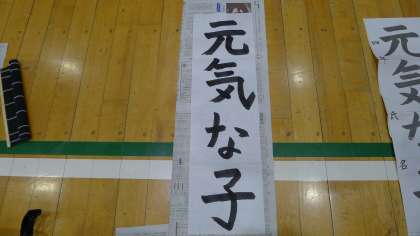 元気な子
元気な
氏名